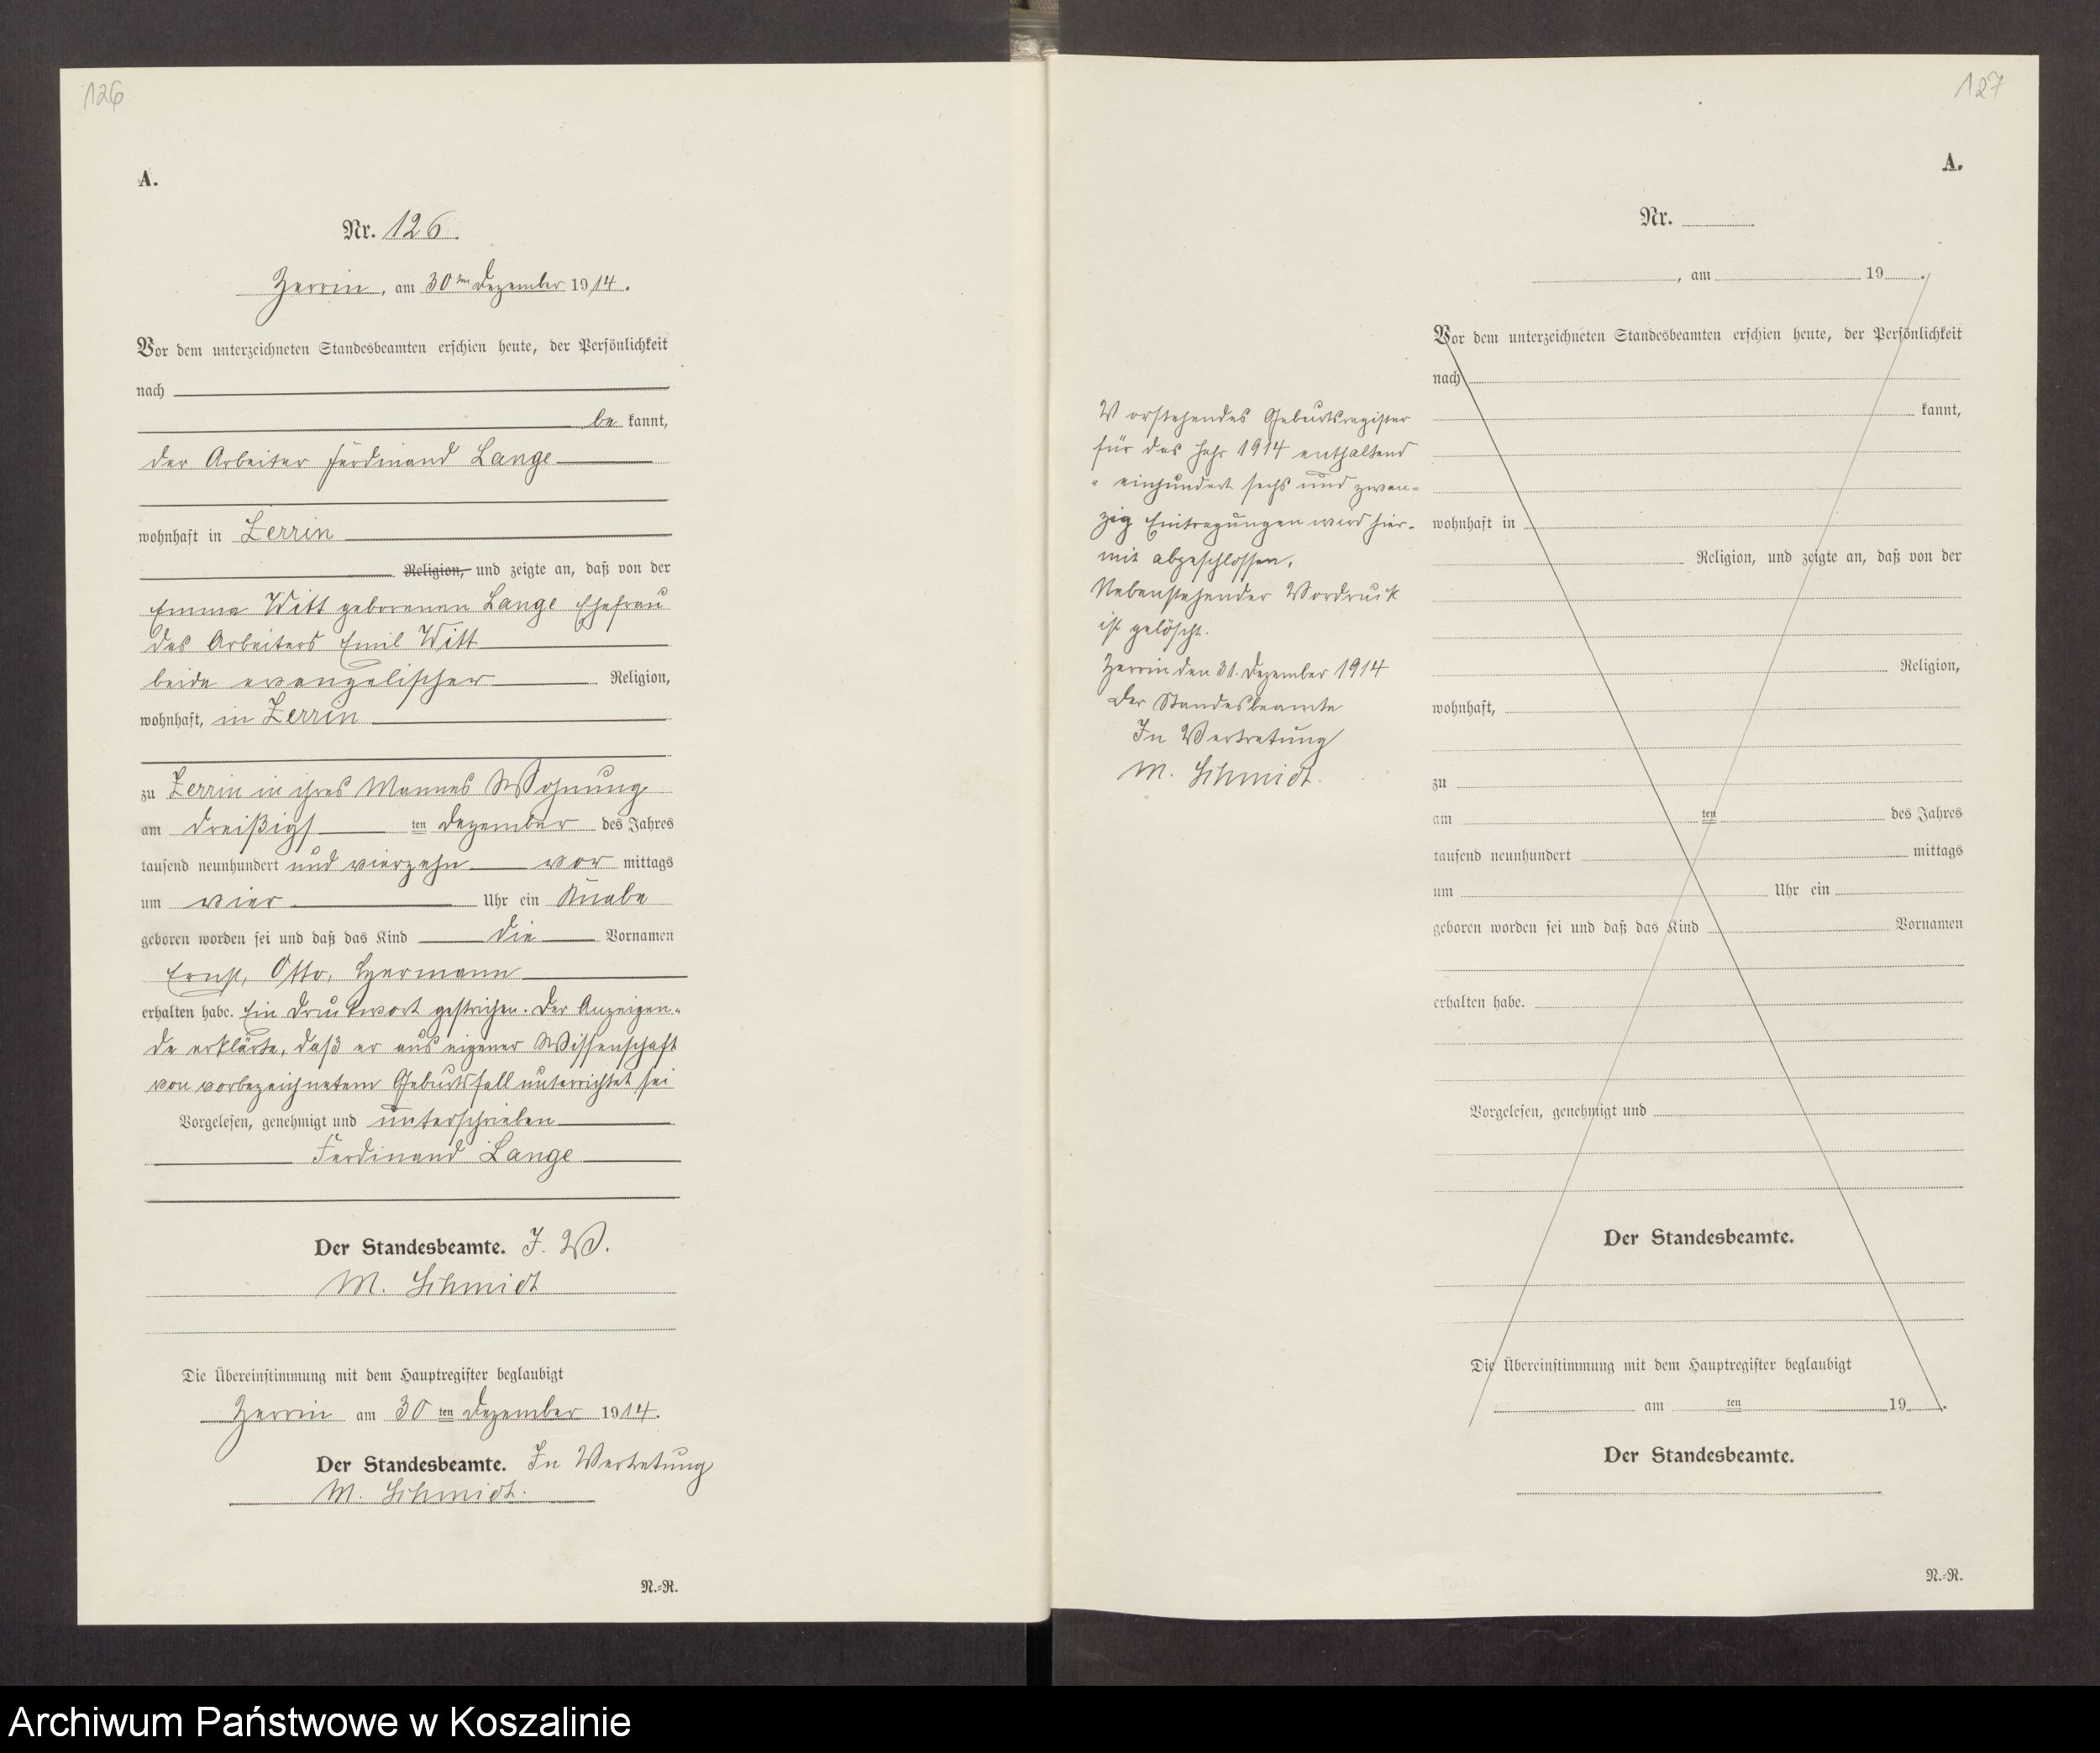 126
A.
Nr. 126.
Zerrin, am 30ten Dezember 1914.
Vor dem unterzeichneten Standesbeamten erschien heute, der Persönlichkeit
nach
be kannt,
der Arbeiter Ferdinand Lange
wohnhaft in Zerrin
Religion, und zeigte an, daß von der
Emma Witt geborenen Lange Ehefrau
des Arbeiters Emil Witt
beide evangelischer Religion,
wohnhaft, in Zerrin
zu Zerrin in ihres Mannes Wohnung
am dreißigs ten Dezember des Jahres
tausend neunhundert und vierzehn vor mittags
um vier Uhr ein Knabe
geboren worden sei und daß das Kind die Vornamen
Ernst, Otto, Hermann
erhalten habe. Ein Druckwort gestrichen. Der Anzeigen-
de erklärte, daß er aus eigener Wissenschaft
von vorbezeichnetem Geburtsfall unterrichtet sei
Vorgelesen, genehmigt und unterschrieben
Ferdinand Lange
Der Standesbeamte. I. V.
M. Schmidt
Die Übereinstimmung mit dem Hauptregister beglaubigt
Zerrin am 30 ten Dezember 1914.
Der Standesbeamte. In Vertretung
M. Schmidt.
N.-R.
127
A.
Nr.
, am 19 .
Vorstehendes Geburtsregister
für das Jahr 1914 enthaltend
" einhundert sechs und zwan-
zig Eintragungen wird hier-
mit abgeschlossen.
Nebenstehender Vordruck
ist gelöscht.
Zerrin den 31. Dezember 1914
Der Standesbeamte
In Vertretung
M. Schmidt.
Vor dem unterzeichneten Standesbeamten erschien heute, der Persönlichkeit
nach
kannt,
wohnhaft in
Religion, und zeigte an, daß von der
Religion,
wohnhaft,
zu
am ten des Jahres
tausend neunhundert mittags
um Uhr ein
geboren worden sei und daß das Kind Vornamen
erhalten habe.
Vorgelesen, genehmigt und
Der Standesbeamte.
Die Übereinstimmung mit dem Hauptregister beglaubigt
am ten 19 .
Der Standesbeamte.
N.-R.
Archiwum Państwowe w Koszalinie